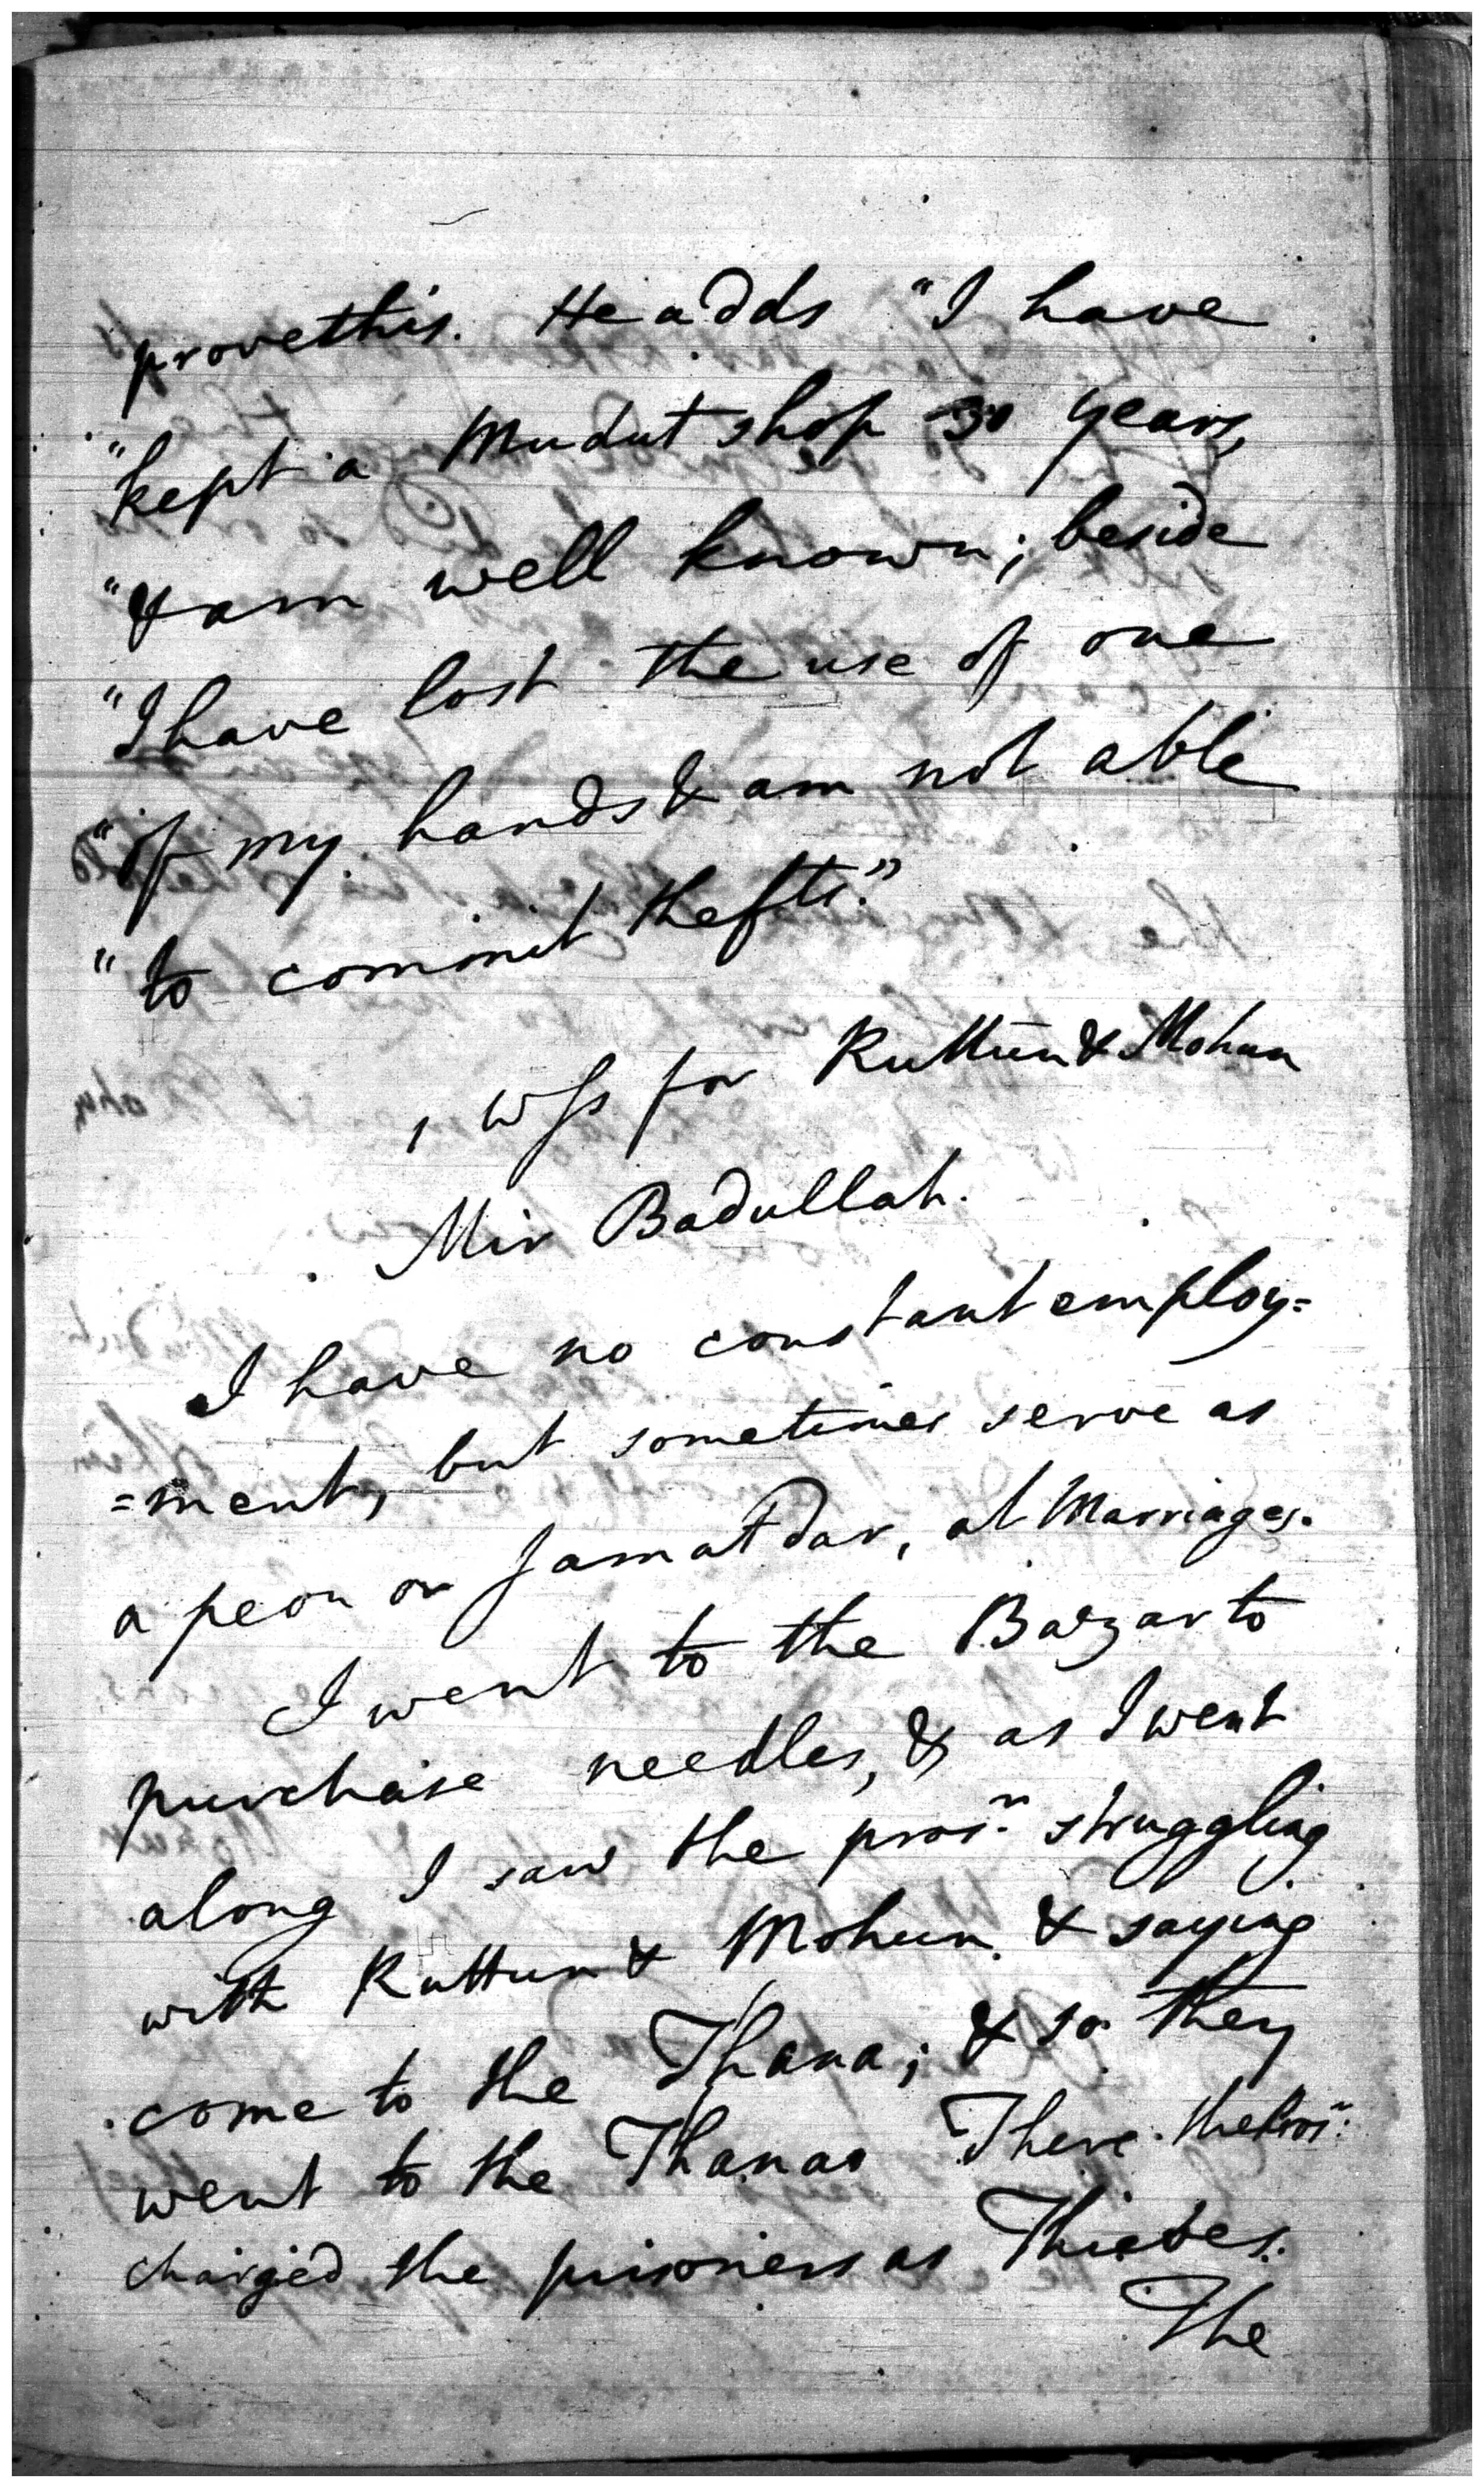 prove this. He adds "I have
"kept a Mudut shop 30 years,
"& am well known; beside
"I have lost the use of one
"of my hands & am not able
"to commit thefts."
1 Wss for Ruttun & Mohun
Mir Badullah.
I have no constant employ=
=ment, but sometimes serve as
a peon or Jamatdar, at Marriages.
I went to the Bazar to
purchase needles, & as I went
along I saw the prosr. struggling
with Ruttun & Mohun & saying
come to the Thana; & so they
went to the Thana. There the Prosr.
charged the prisoners as Thieves.
The